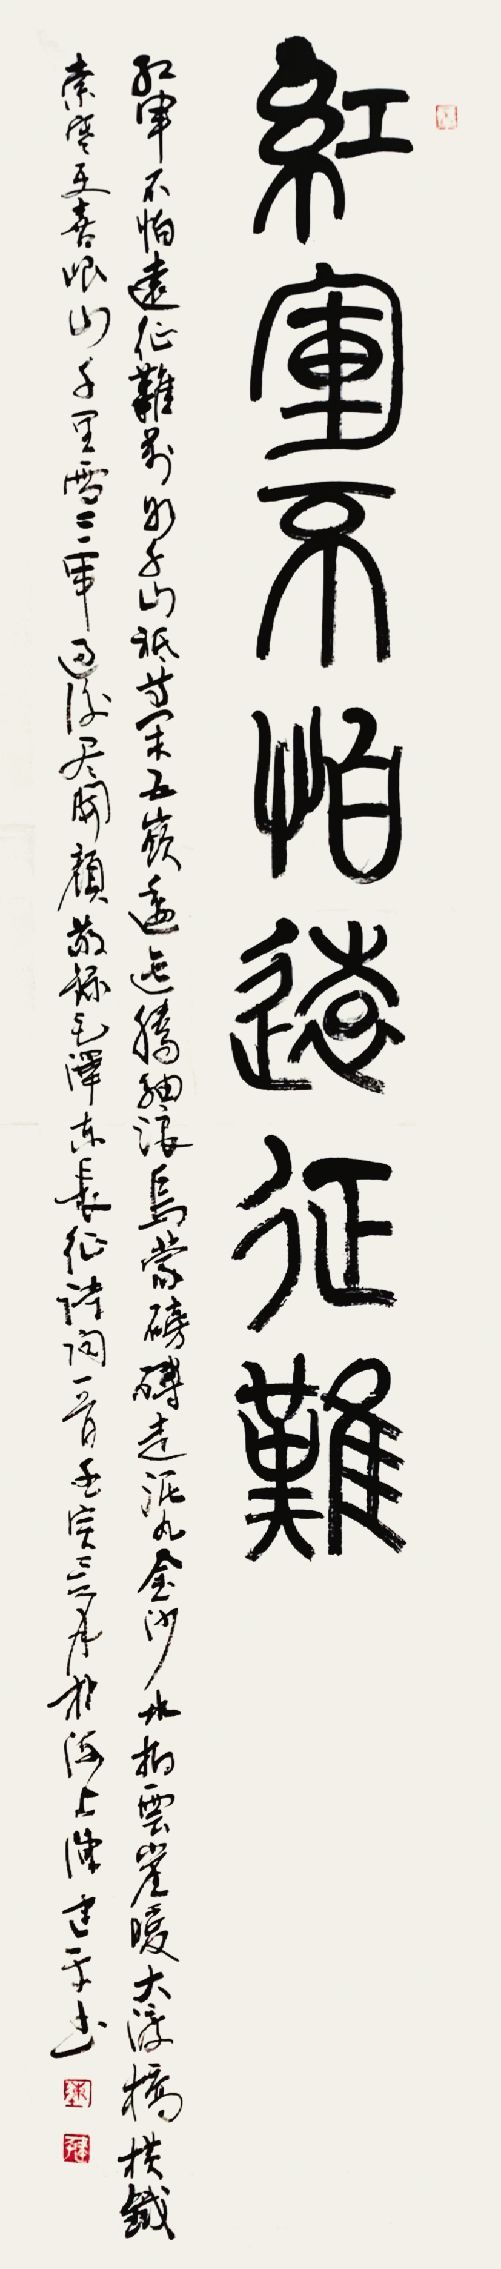 紅軍不怕遠征難
紅軍不怕遠征難萬水千山祗等閑五嶺逶迤騰細浪烏蒙磅礴走泥丸金沙水拍雲崖暖大渡橋橫鐵
索寒更喜岷山千里雪三軍過後盡開顏敬録毛澤東長征詩詞一首壬寅三月於海上陳建平書